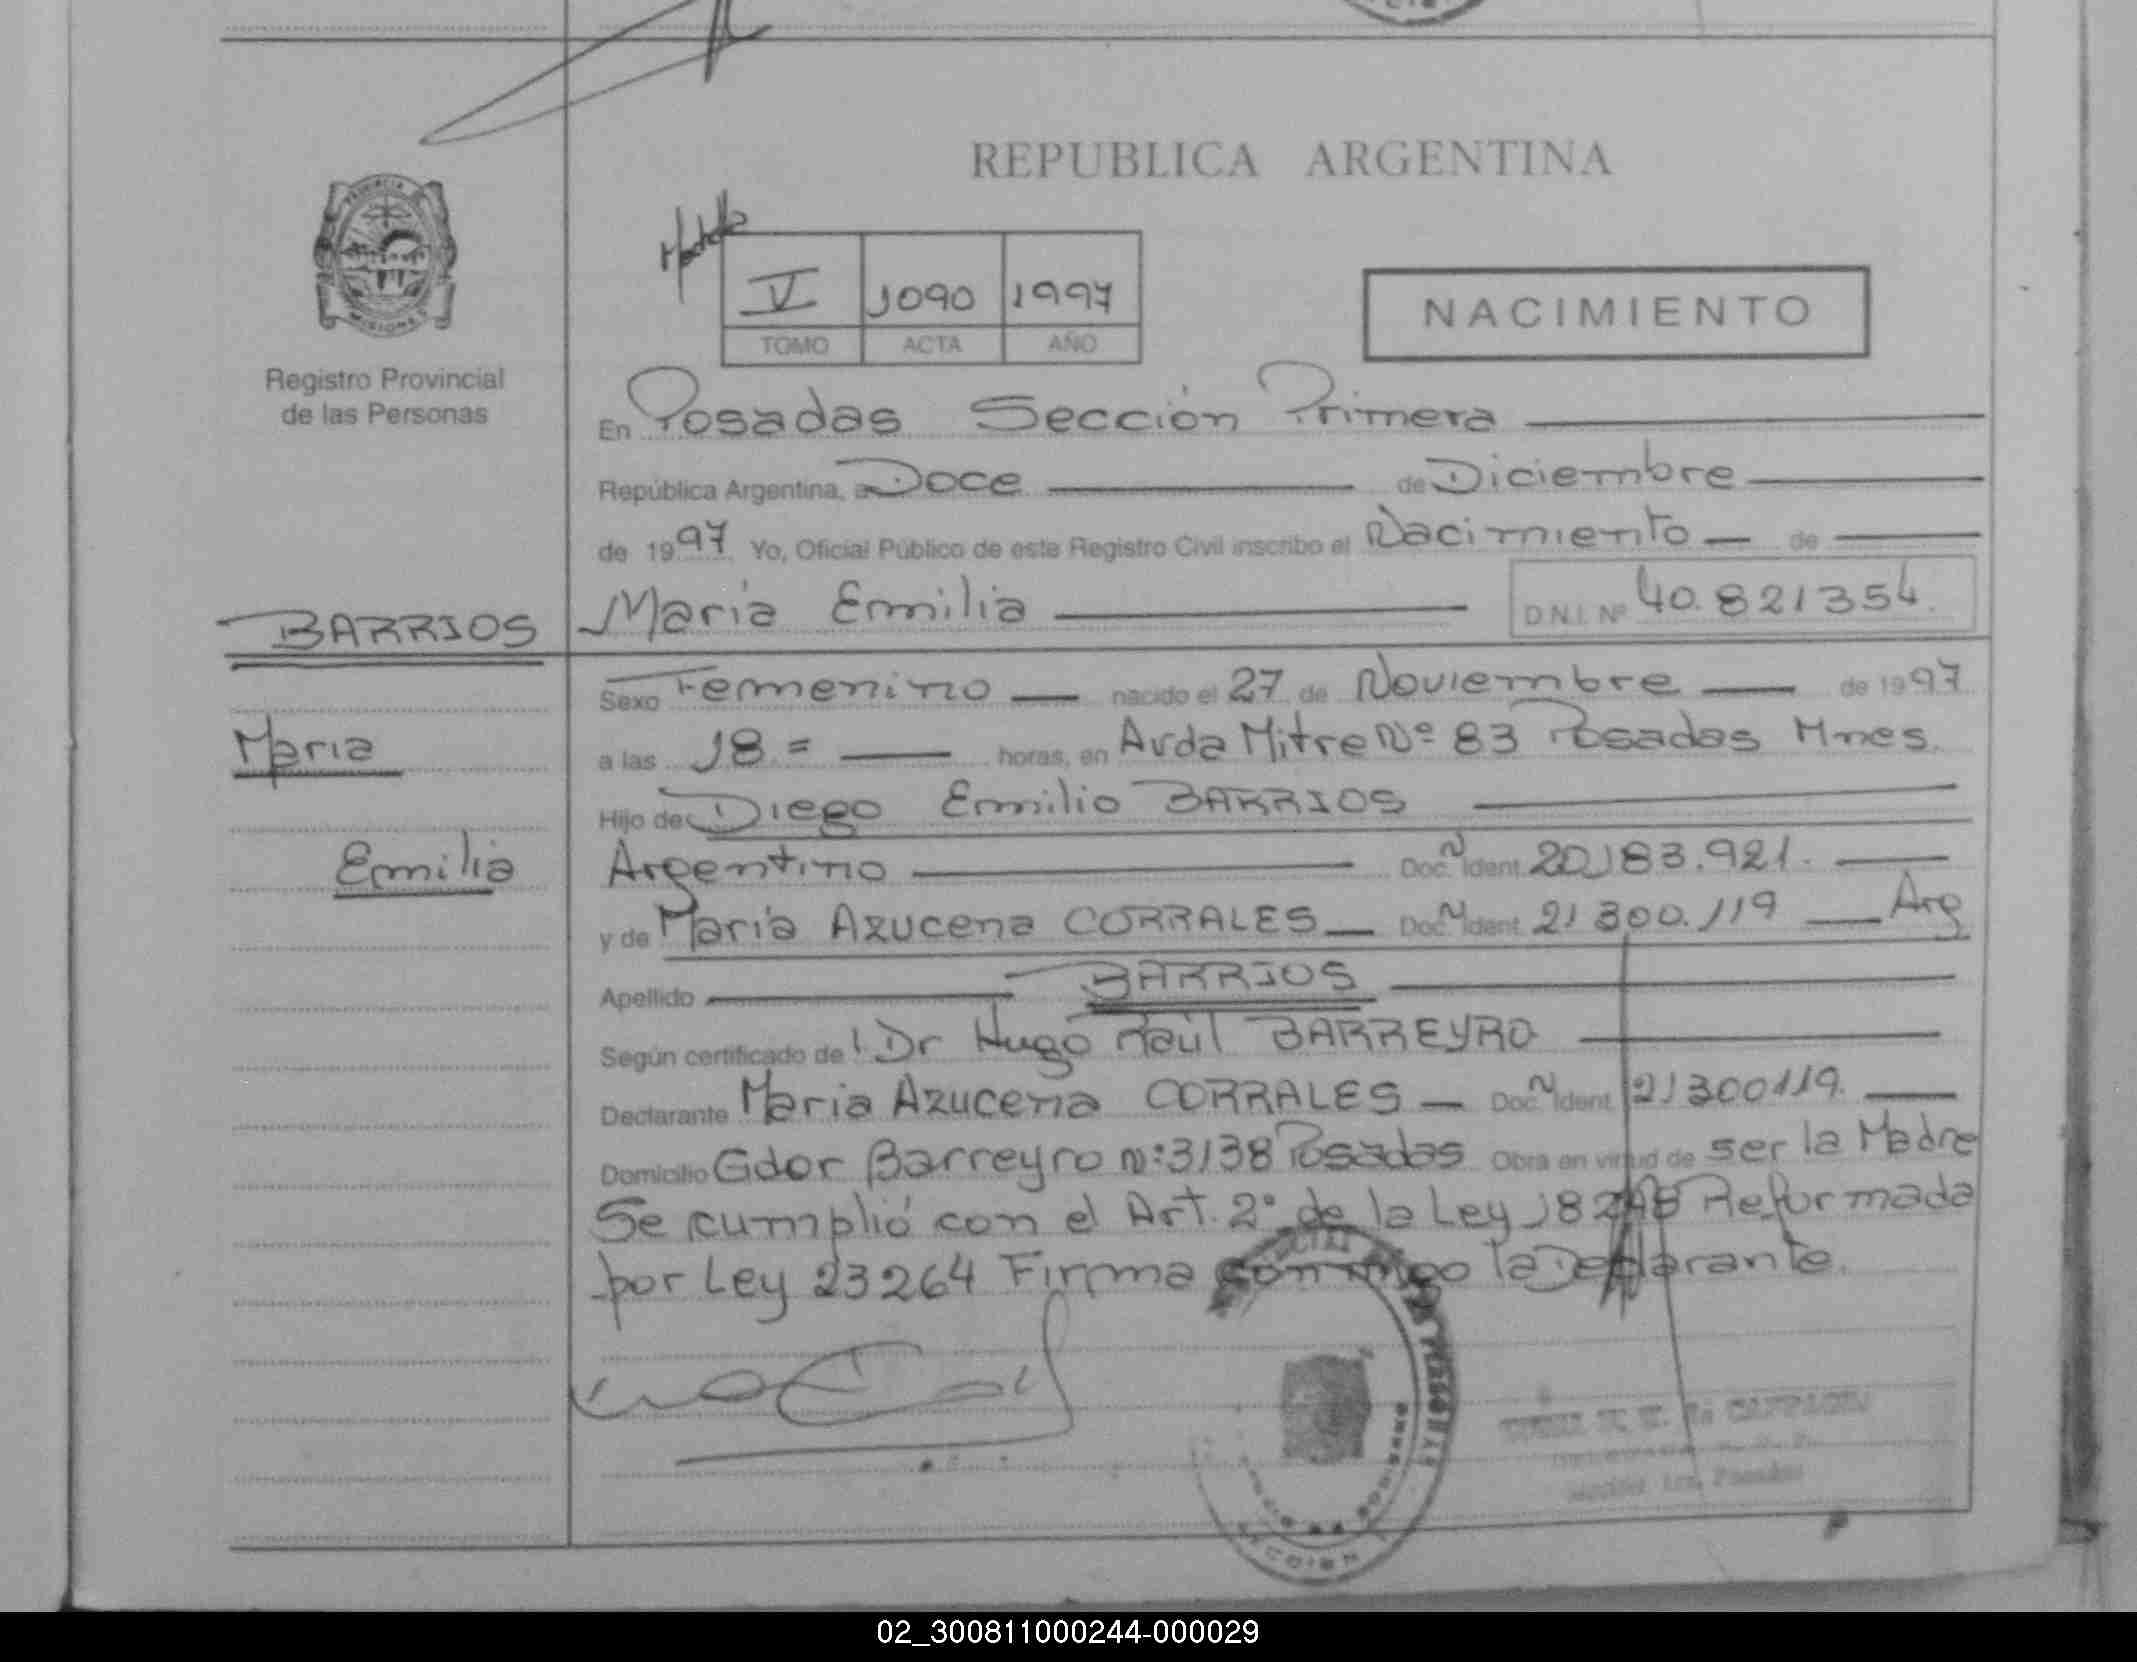 REPUBLICA ARGENTINA
PROVINCIA
MISIONES
Registro Provincial
de las Personas
V 1090 1997
TOMO ACTA AÑO
NACIMIENTO
En Posadas Sección Primera
República Argentina, a Doce de Diciembre
de 1997 Yo, Oficial Público de este Registro Civil inscribo el Nacimiento de
BARRIOS María Emilia D.N.I. Nº 40.821354.
Sexo Femenino nacido el 27 de Noviembre de 1997
Maria
a las 18 = horas, en Avda Mitre Nº 83 Posadas Mnes.
Hijo de Diego Emilio BARRIOS
Emilia
Argentino Doc. N Ident. 20183.921.
y de María Azucena CORRALES Doc. N Ident. 21300.119 Arg
Apellido BARRIOS
Según certificado de: Dr Hugo Raúl BARREYRO
Declarante Maria Azucena CORRALES Doc. N Ident. 21300119.
Domicilio Gdor Barreyro N:3138 Posadas Obra en virtud de ser la Madre
Se cumplió con el Art. 2º de la Ley 18248 Reformada
por Ley 23264 Firma conmigo la Declarante.
02_300811000244-000029